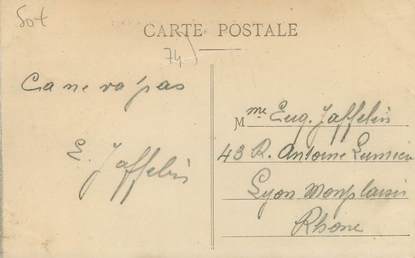 50t
CARTE POSTALE
74
Ca ne va pas
E. Jaffelin
Mme Eug. Jaffelin
43 R. Antoine Lumière
Lyon Monplaisir
Rhone